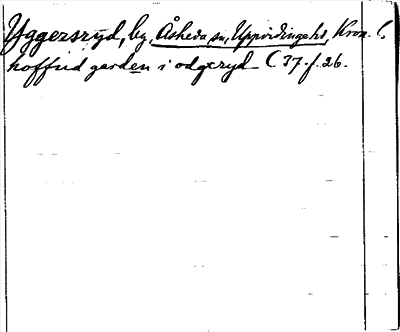 Yggersryd, by, Åsheda sn, Uppvidinge hs, Kron. l,
hoffud garden i odgeryd C 37. f. 26.